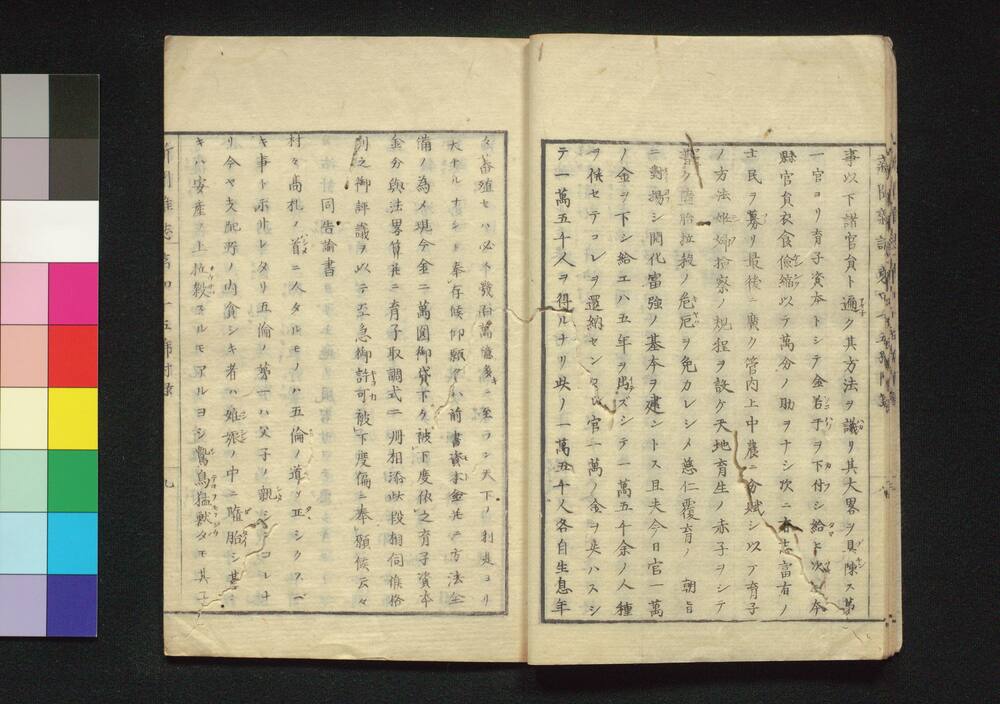 事以下諸官負ト適ク其方法ヲ議リ其大畧ヲ具陳ス第
一官ヨリ育子資本トシテ金若干ヲ下付シ給ヒ次ニ本
縣官負衣食儉縮以テ萬分ノ助ヲナシ次ニ有志富有ノ
士民ヲ募リ最後ニ廣ク管内上中農ニ分賦シ以テ育子
ノ方法姙婦撿察ノ規程ヲ設ケ天地育生ノ赤子ヲシテ
堕胎拉殺ノ危厄ヲ免カレシメ慈仁覆育ノ 朝旨
ニ對揚シ開化富強ノ基本ヲ建ントス且夫今日官一萬
ノ金ヲ下シ給エハ五年ヲ出ズシテ一萬五千余ノ人種
ヲ候セテコレヲ還納セン 官一萬ノ金ヲ失ハスシ
テ一萬五千人ヲ得ルナリ此ノ一萬五千人各自生息年
々蕃殖セハ必不數百萬億 ニ至ラン天下ノ利是ヨリ
大ナルハナシト奉存候仰願クハ前書資本金並ニ方法全
備ノ為メ現今金二萬圓御貸下ケ被下度依之育子資本
金分與法畧算並ニ育子取調式二冊相添此段相伺候格
別之御評議ヲ以テ至急御許可被下度偏ニ奉願候云々
同告諭書
村々高札ノ首ニ人タルモノハ五倫ノ道ヲ正シクスベ
キ事ト示サレタリ五倫ノ第一ハ父子ノ親シミコレナ
リ今ヤ支配所ノ内貪シキ者ハ姙娠ノ中ニ堕胎シ甚シ
キハ安産ノ上拉殺スルモノアルヨシ鷙鳥猛獸タモ其子
新聞雜誌 第四十五號附録 九